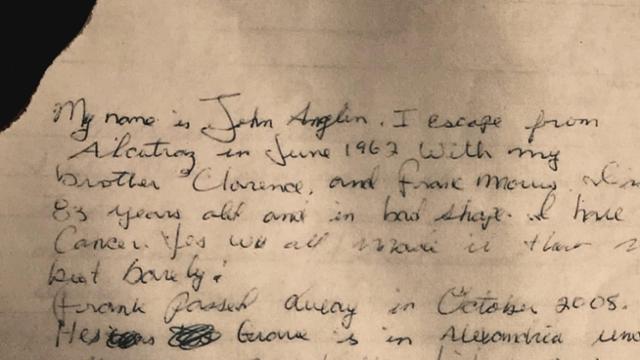 My name is John Anglin. I escape from
Alcatraz in June 1962 With my
brother Clarence, and Frank Morris. I'm
83 years old and in bad shape. I have
Cancer. Yes we all made it that
but barely!
Frank passed away in October 2005.
His Grave is in Alexandria